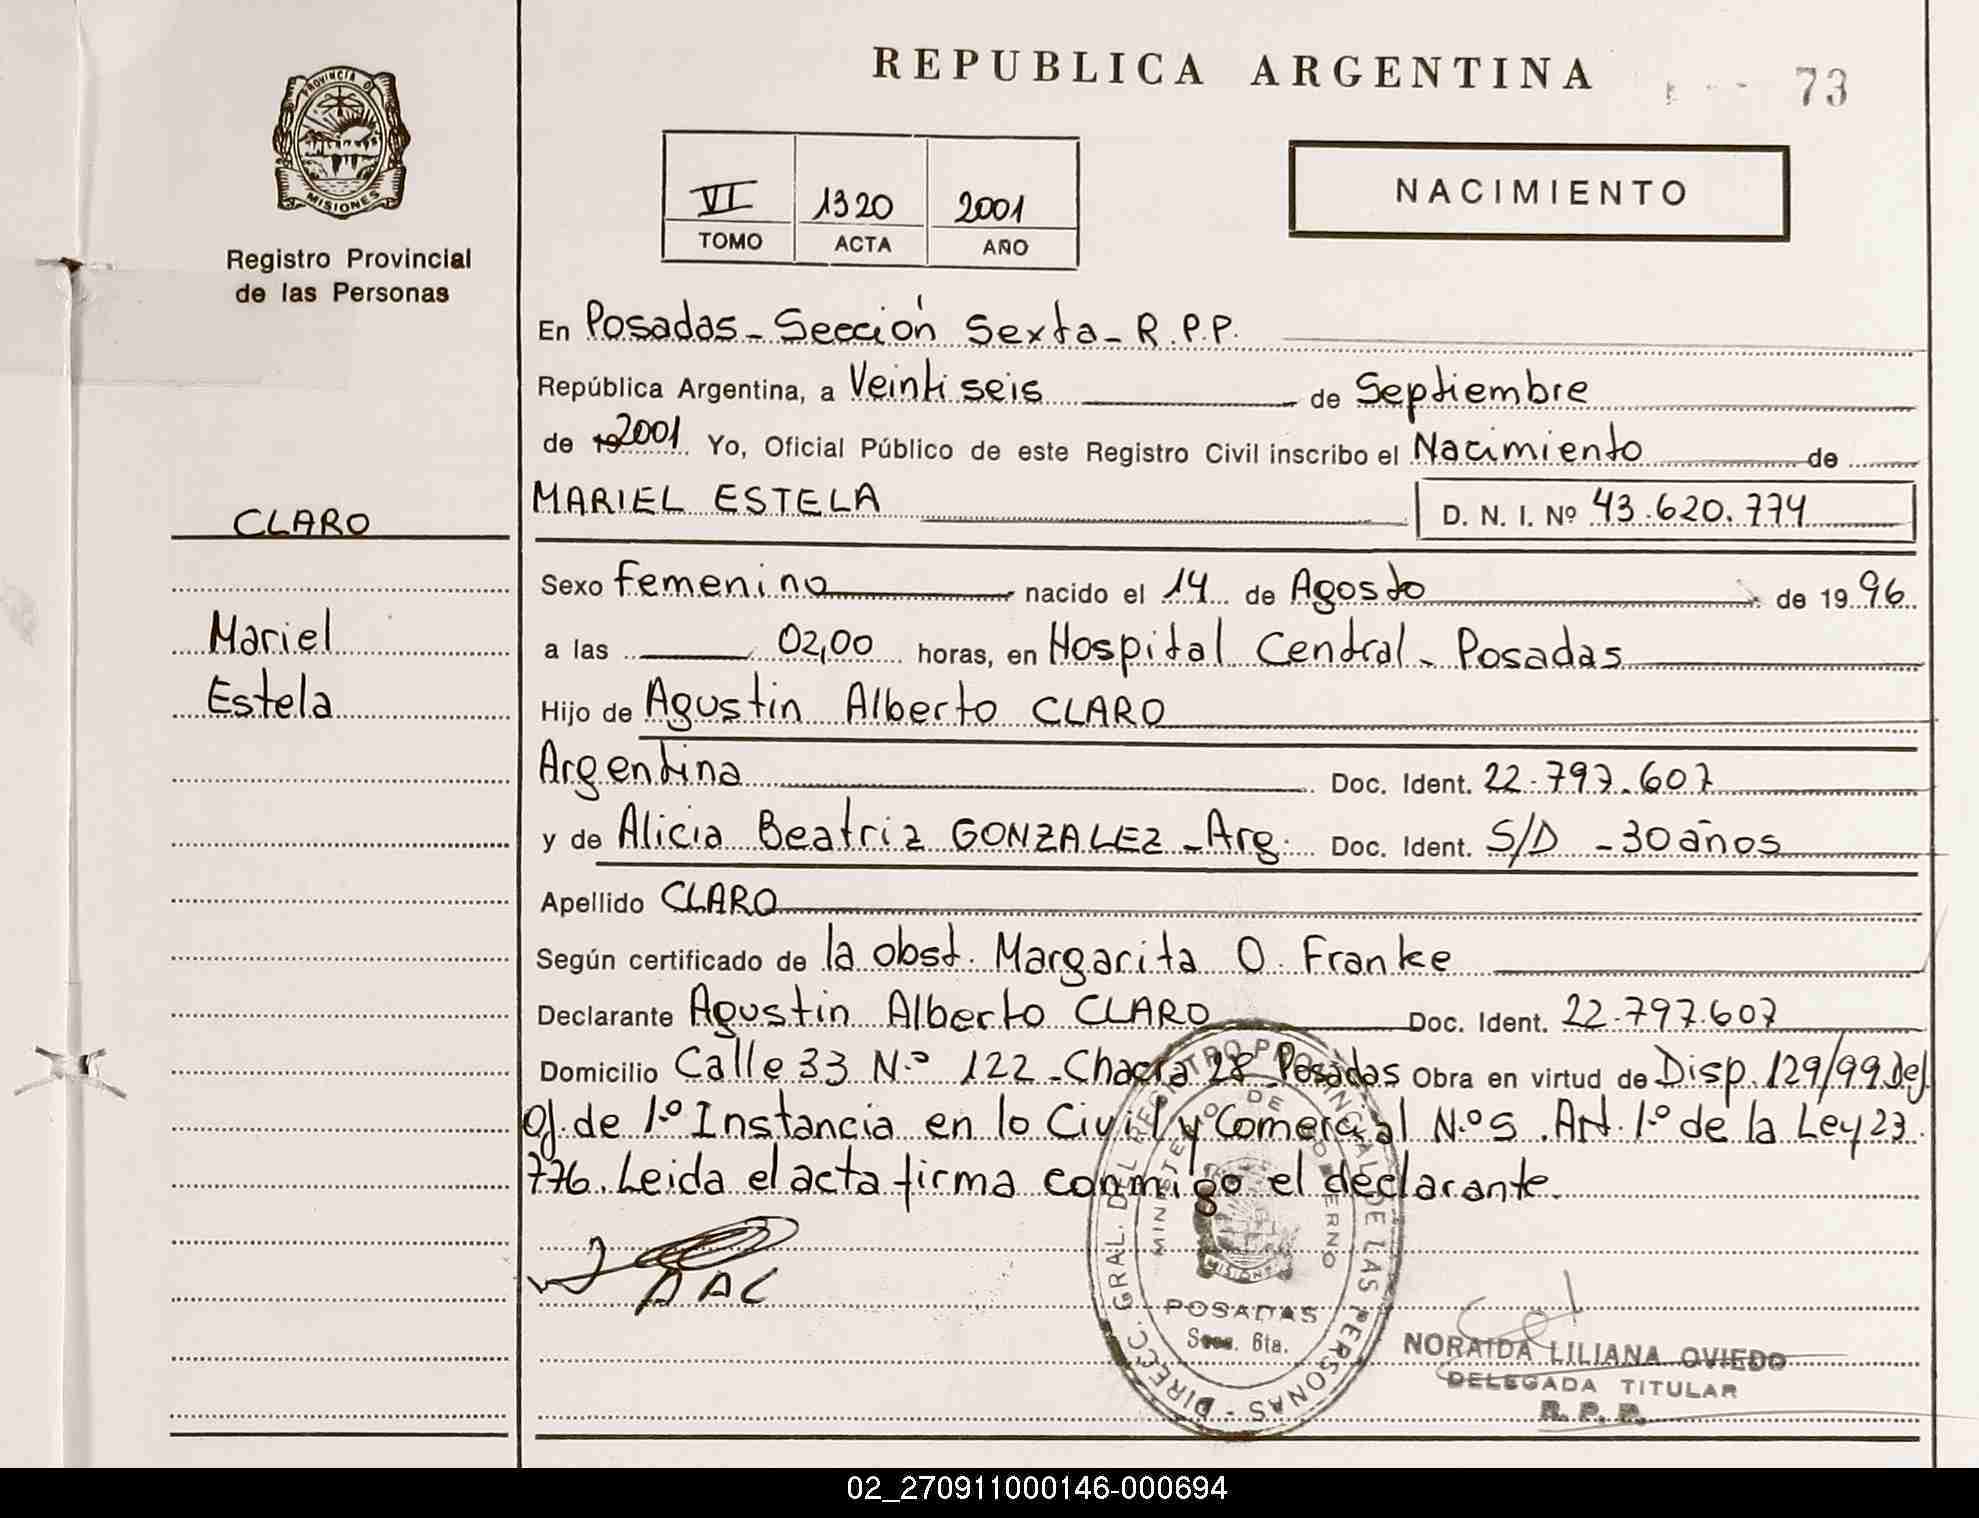 REPUBLICA ARGENTINA
73
PROVINCIA DE
MISIONES
Registro Provincial
de las Personas
VI 1320 2001
TOMO ACTA AÑO
NACIMIENTO
En Posadas - Sección Sexta - R.P.P.
República Argentina, a Veintiseis de Septiembre
de 19 2001 Yo, Oficial Público de este Registro Civil inscribo el Nacimiento de
MARIEL ESTELA D. N. I. Nº 43.620.774
CLARO
Mariel
Estela
Sexo Femenino nacido el 14 de Agosto de 1996
a las 02,00 horas, en Hospital Central - Posadas
Hijo de Agustin Alberto CLARO
Argentina Doc. Ident. 22.797.607
y de Alicia Beatriz GONZALEZ - Arg. Doc. Ident. S/D - 30 años
Apellido CLARO
Según certificado de la obst. Margarita O. Franke
Declarante Agustin Alberto CLARO Doc. Ident. 22.797.607
Domicilio Calle 33 N.º 122 - Chacra 28 Posadas Obra en virtud de Disp. 129/99 Def.
Of. de 1.º Instancia en lo Civil y Comercial N.º 5. Art. 1.º de la Ley 23.
776. Leida el acta firma conmigo el declarante.
AAC
DIRECC. GRAL. DEL REGISTRO PROVINCIAL DE LAS PERSONAS -
MINISTERIO DE GOBIERNO
MISIONES
POSADAS
Secc. 6ta.
NORAIDA LILIANA OVIEDO
DELEGADA TITULAR
R. P. P.
02_270911000146-000694